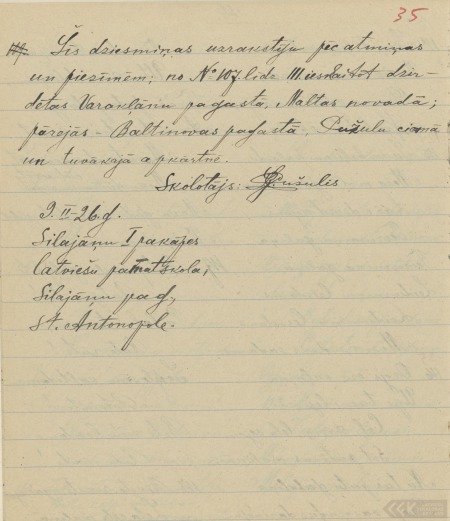 35
111. Šīs dziesmiņas uzrakstīju pēc atmiņas
un piezīmēm; no Nº 107. līdz 111. ieskaitot dzir-
dētas Varakļānu pagastā, Maltas novadā;
pārējās - Baltinovas pagastā, Pužulu ciemā
un tuvākajā apkārtnē.
Skolotājs: Pužulis
9. II - 26. g.
Silajāņu I pakāpes
latviešu pamatskola,
Silajāņu pag.,
st. Antonopole.